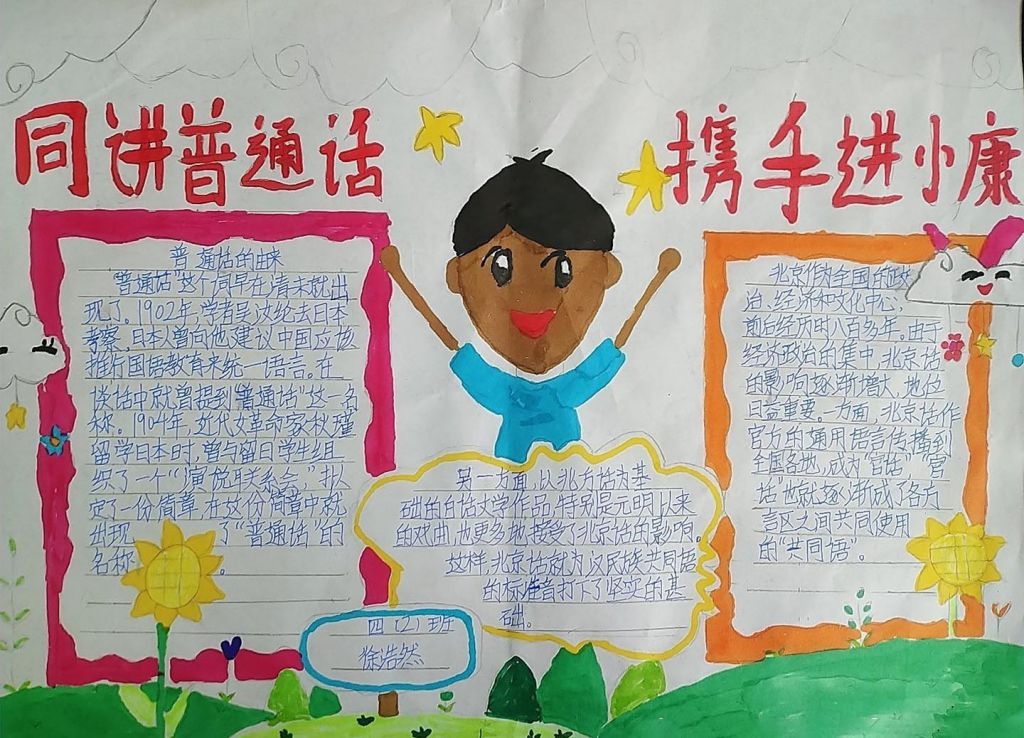 同讲普通话
携手进小康
普通话的由来
"普通话"这个词早在清末就出
现了。1902年,学者吴汝纶去日本
考察,日本人曾向他建议中国应该
推行国语教育来统一语言。在
谈话中就曾提到"普通话"这一名
称。1904年,近代女革命家秋瑾
留学日本时,曾与留日学生组
织了一个"演说联系会",拟
定了一份简章,在这份简章中就
出现了"普通话"的
名称。
另一方面,以北方话为基
础的白话文学作品,特别是元明以来
的戏曲,也更多地接受了北京话的影响。
这样,北京话就为汉民族共同语
的标准音打下了坚实的基
础。
北京作为全国的政
治、经济和文化中心,
前后经历时八百多年。由于
经济政治的集中,北京话
的影响逐渐增大,地位
日益重要。一方面,北京话作
官方的通用语言传播到
全国各地,成为"官话","官
话"也就逐渐成了各方
言区之间共同使用
的"共同语"。
四(2)班
徐浩然